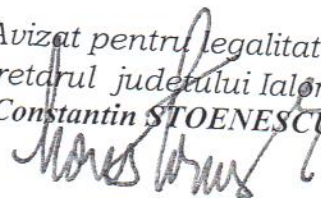 Avizat pentru legalitat
retarul județului Ialo
Constantin STOENESCU